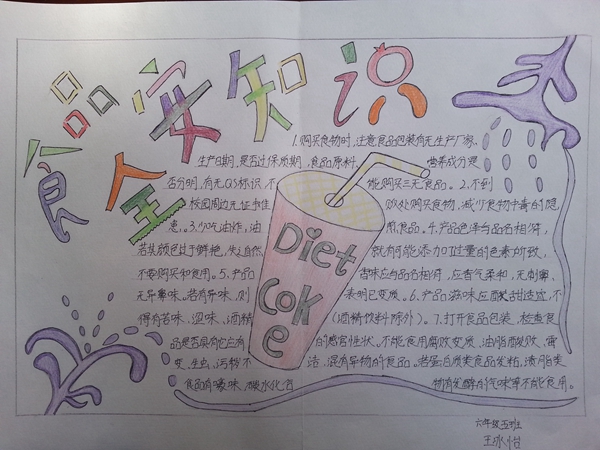 食品安全知识
1.购买食物时,注意食品包装有无生产厂家、
生产日期,是否过保质期,食品原料,营养成分是
否分明,有无QS标识,不能购买三无食品。2.不到
校园周边无证摊贩处购买食物,减少食物中毒的隐
患。3.少吃油炸,油煎食品。4.产品色泽与品名相符,
若其颜色过于鲜艳,失去自然就有可能添加过量的色素所致,
不要购买和食用。5.产品香味应与品名相符,应香气柔和,无刺鼻,
无异臭味,若有异味,则表明已变质。6.产品滋味应酸甜适宜,不
得有苦味,涩味,酒精(酒精饮料除外)。7.打开食品包装,检查食
品是否具有它应有的感官性状,不能食用腐败变质、油脂酸败、霉
变、生虫、污秽不洁、混有异物的食品。若蛋白质类食品发粘,渍脂类
食品有嚎味,碳水化合物有发酵的气味等不能食用。
Diet
Cok
e
六年级五班
王冰怡